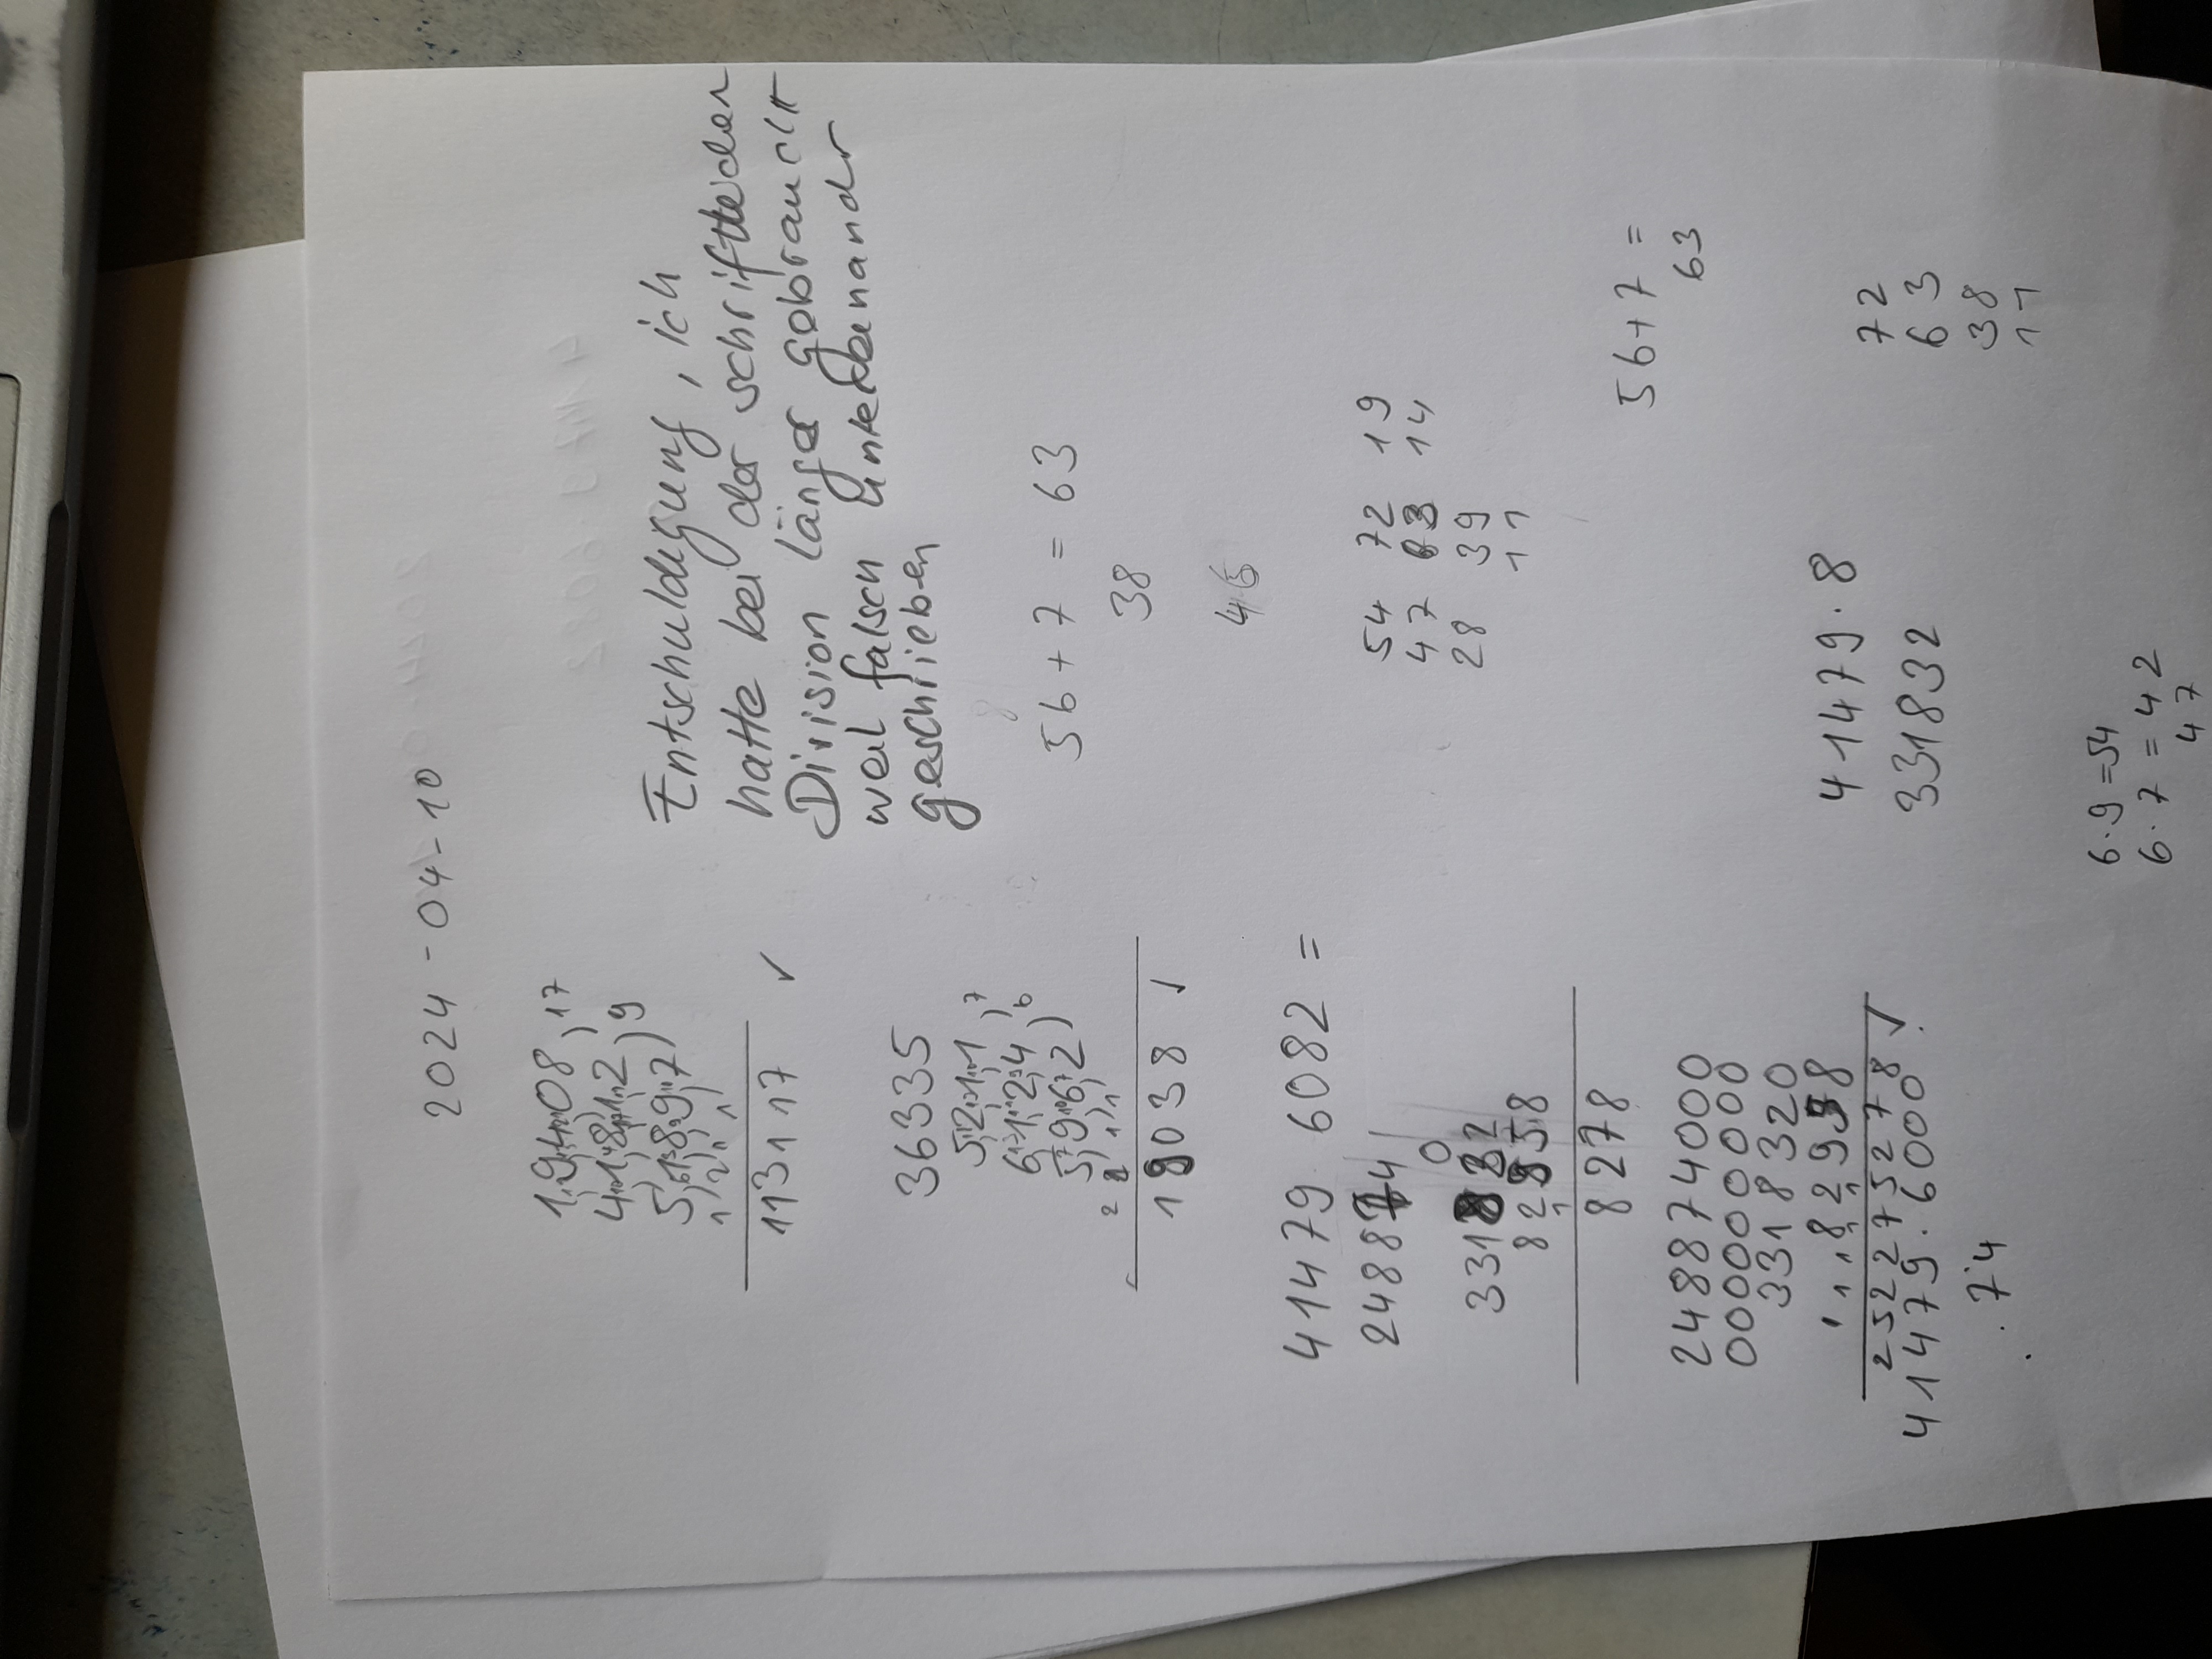 2024-04-10
19408
17
41812
9
51897
113117 ✓
Entschuldigung, ich
hatte bei der schriftlichen
Division länger gebraucht
weil falsch untereinander
geschrieben
36335
5211
7
6124
6
5962
19038 ✓
56+7 = 63
38
41479 6082 =
24887
54 72 19
47 63 14
28 39
11
82958
8278
56+7 =
63
248874000
000000000
3318320
82958
252275278 ✓
41479.6000
.74
41479.8
331832
72
63
38
11
6.9=54
6.7=42
47